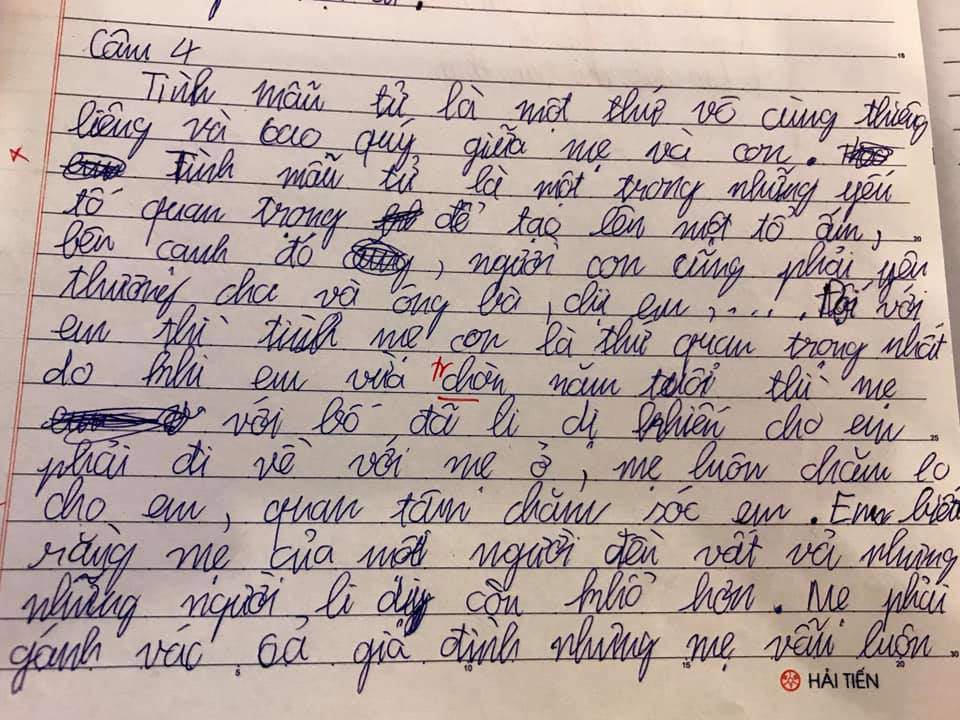 Câu 4
Tình mẫu tử là một thứ vô cùng thiêng
liêng và cao quý giữa mẹ và con.
Tình mẫu tử là một trong những yếu
tố quan trong để tạo lên một tổ ấm,
bên cạnh đó, người con cũng phải yêu
thương cha và ông bà, chị em, .... Đối với
em thì tình mẹ con là thứ quan trọng nhất
do khi em vừa chòn năm tuổi thì mẹ
tr
với bố đã li dị khiến cho em
phải đi về với mẹ ở, mẹ luôn chăm lo
cho em, quan tâm chăm sóc em. Em biết
rằng mẹ của một người đều vất vả nhưng
những người li dị còn khổ hơn. Mẹ phải
gánh vác cả gia đình nhưng mẹ vẫn luôn
5 10 15 20
15
20
25
30
HẢI TIẾN